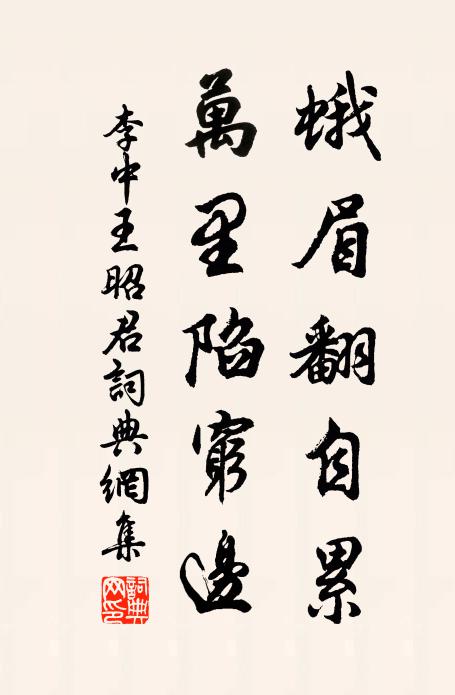 蛾眉翻自累
萬里陷窮邊
李中王昭君詞典網集
詞典網印